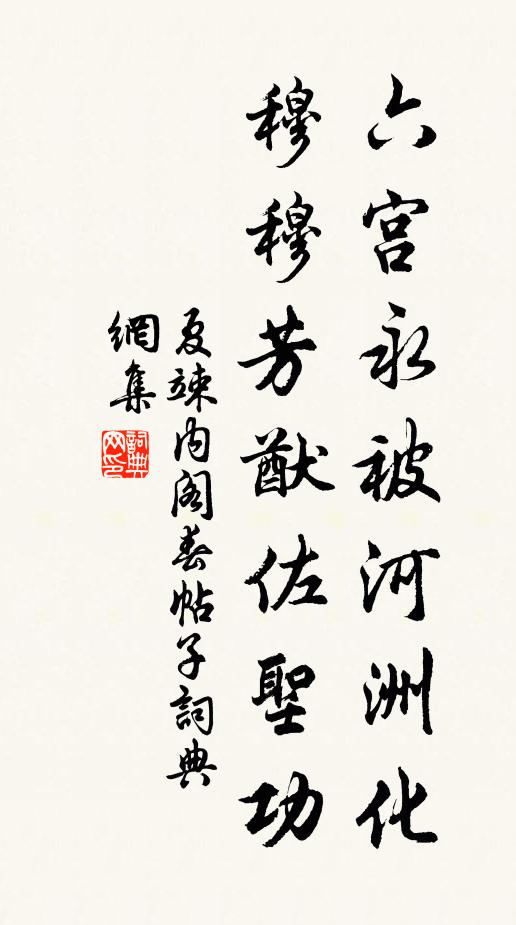 六宮永被河洲化
穆穆芳猷佐聖功
夏竦內閣春帖子詞典
網集
詞典
网印